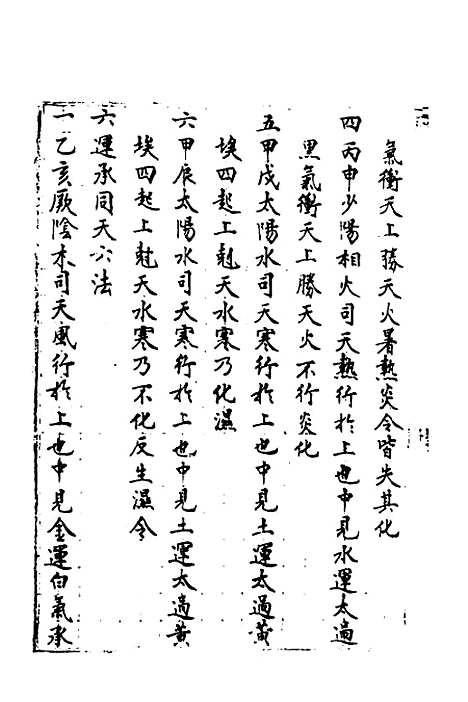 氣衝天上勝天火暑熱炎令皆失其化
四丙申少陽相火司天熱行於上也中見水運太過
黑氣衝天上勝天火不行炎化
五甲戌太陽水司天寒行於上也中見土運太過黃
埃四起上尅天水寒乃化濕
六甲辰太陽水司天寒行於上也中見土運太過黃
埃四起上尅天水寒乃不化反生濕令
六運承同天六法
一乙亥厥陰木司天風行於上也中見金運白氣承